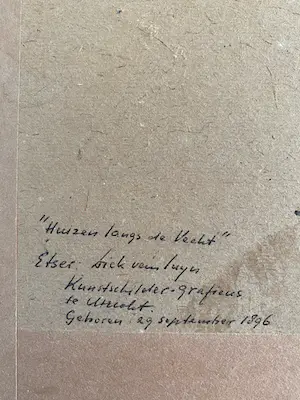 "Huizen langs de Vecht"
Etser: Dick van Luyn
Kunstschilder-graficus
te Utrecht.
Geboren: 29 september 1896